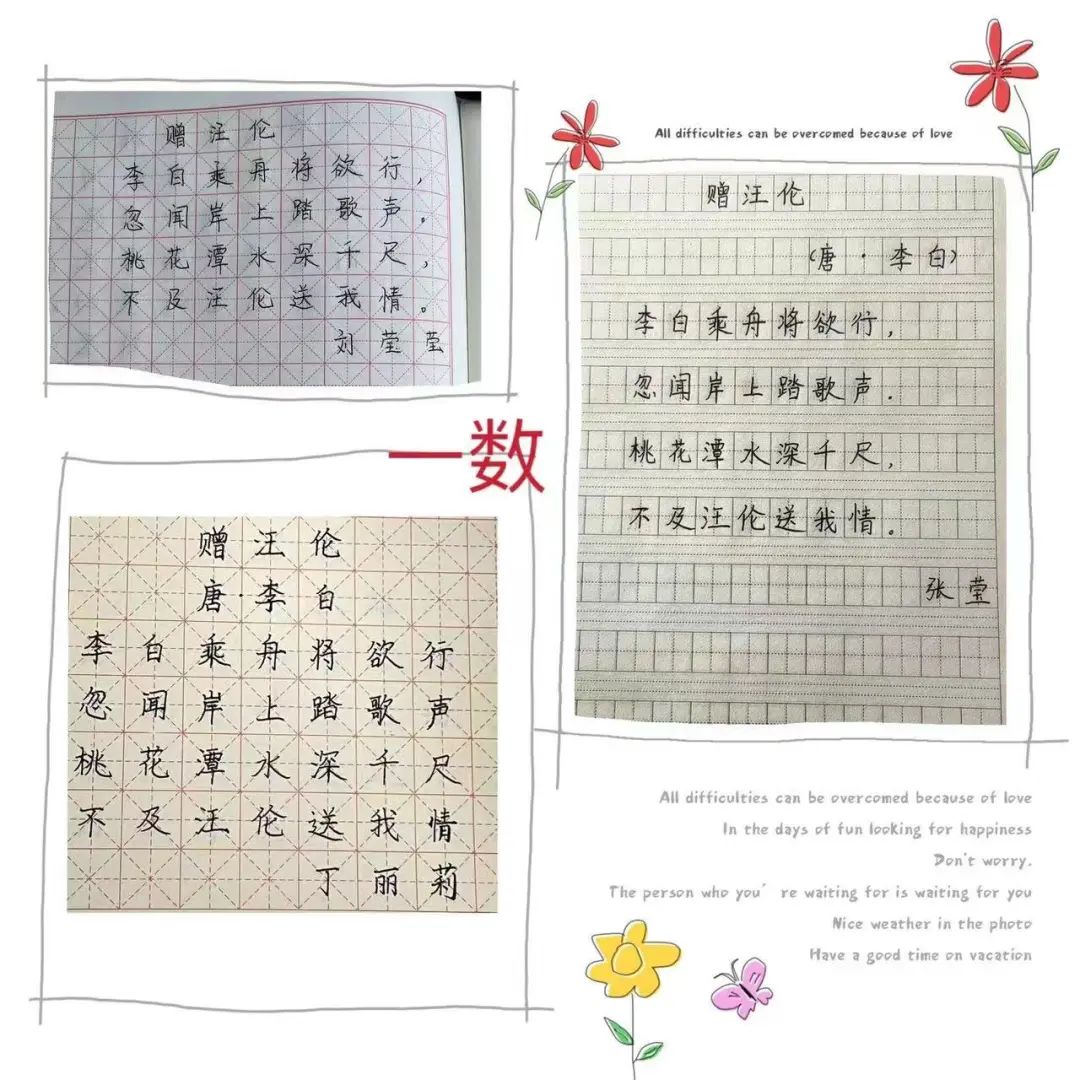 赠汪伦
李白乘舟将欲行，
忽闻岸上踏歌声。
桃花潭水深千尺，
不及汪伦送我情。
刘莹莹
All difficulties can be overcomed because of love
赠汪伦
(唐·李白)
李白乘舟将欲行，
忽闻岸上踏歌声.
桃花潭水深千尺，
不及汪伦送我情。
张莹
一数
赠汪伦
唐·李白
李白乘舟将欲行
忽闻岸上踏歌声
桃花潭水深千尺
不及汪伦送我情
丁丽莉
All difficulties can be overcomed because of love
In the days of fun looking for happiness
Don't worry.
The person who you're waiting for is waiting for you
Nice weather in the photo
Have a good time on vacation